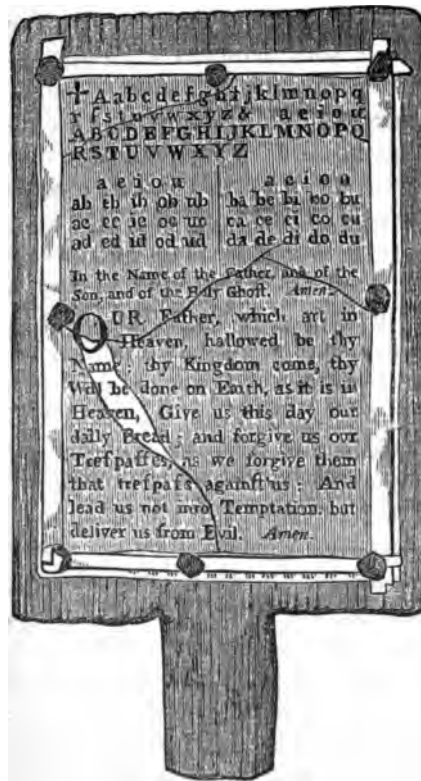 ✝Aabcdefghijklmnopq
rſstuvwxyz& aeiou
ABCDEFGHIJKLMNOPQ
RSTUVWXYZ
a e i o u a e i o u
ab eb ib ob ub ba be bi bo bu
ac ec ic oc uc ca ce ci co cu
ad ed id od ud da de di do du
In the Name of the Father, and of the
Son, and of the Holy Ghoſt. Amen.
OUR Father, which art in
Heaven, hallowed be thy
Name; thy Kingdom come, thy
Will be done on Earth, as it is in
Heaven, Give us this day our
daily Bread; and forgive us our
Treſpaſſes, as we forgive them
that treſpaſs againſt us: And
lead us not into Temptation, but
deliver us from Evil. Amen.